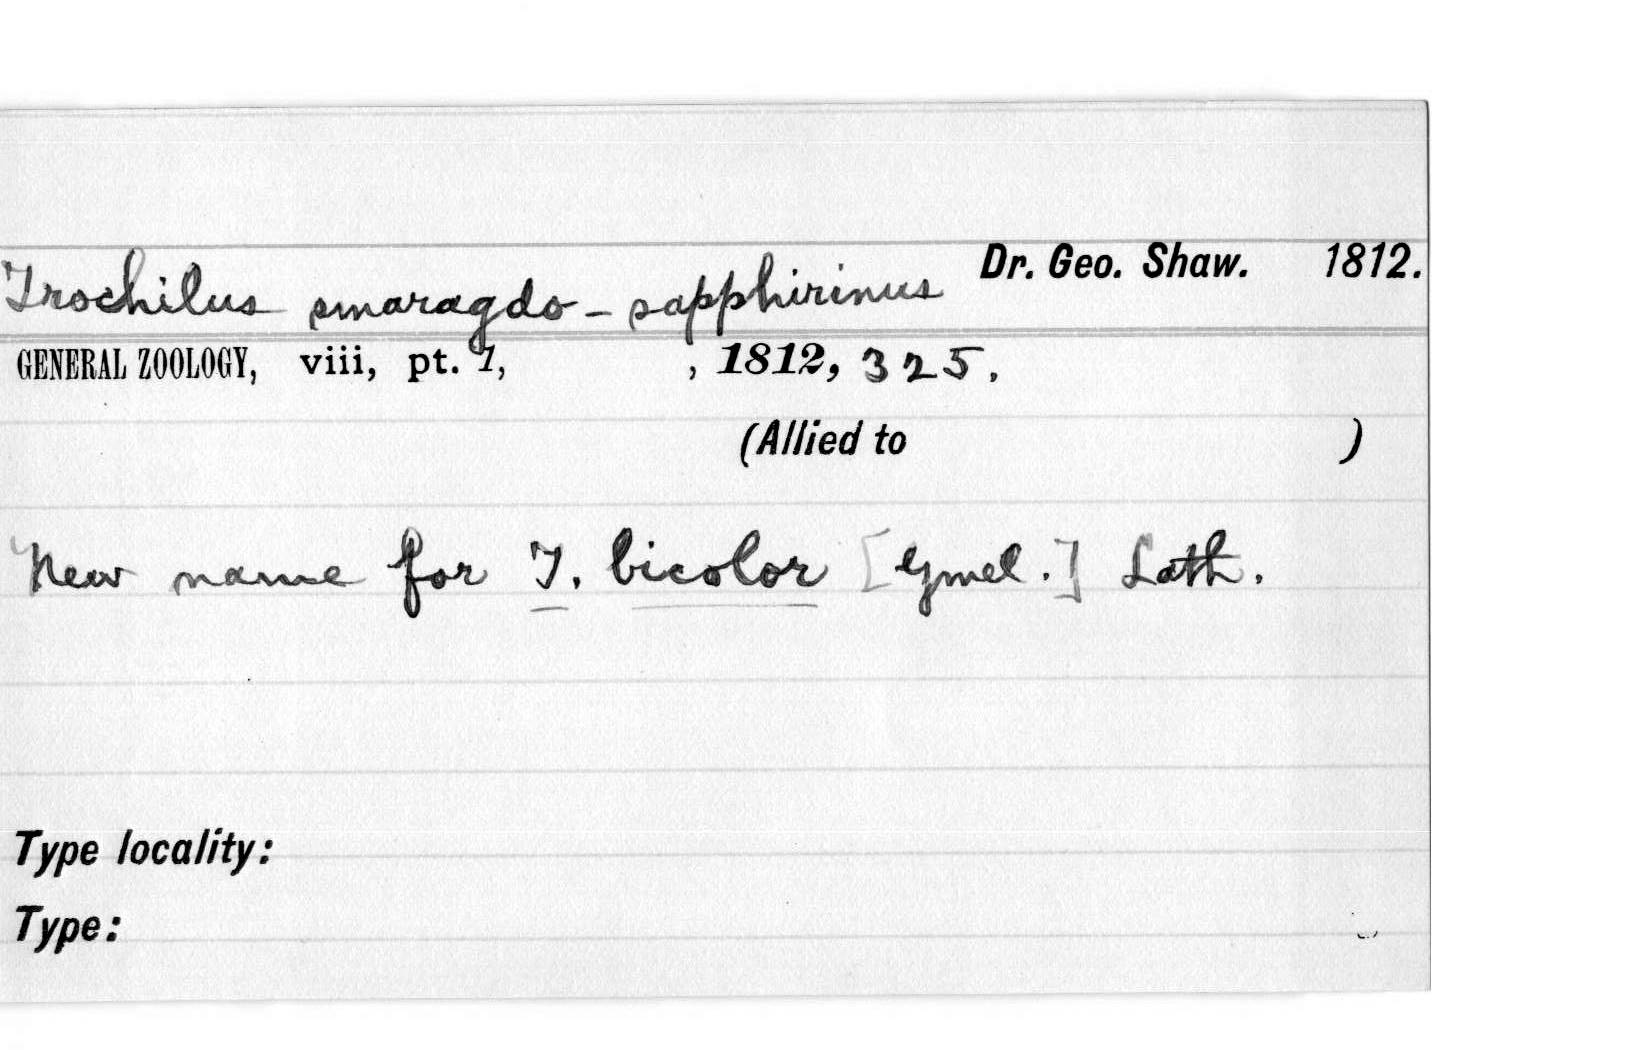 Dr. Geo. Shaw. 1812.
Trochilus smaragdo-sapphirinus
GENERAL ZOOLOGY, viii, pt. 1, , 1812, 325.
(Allied to )
New name for T. bicolor [Gmel.] Lath.
Type locality:
Type: